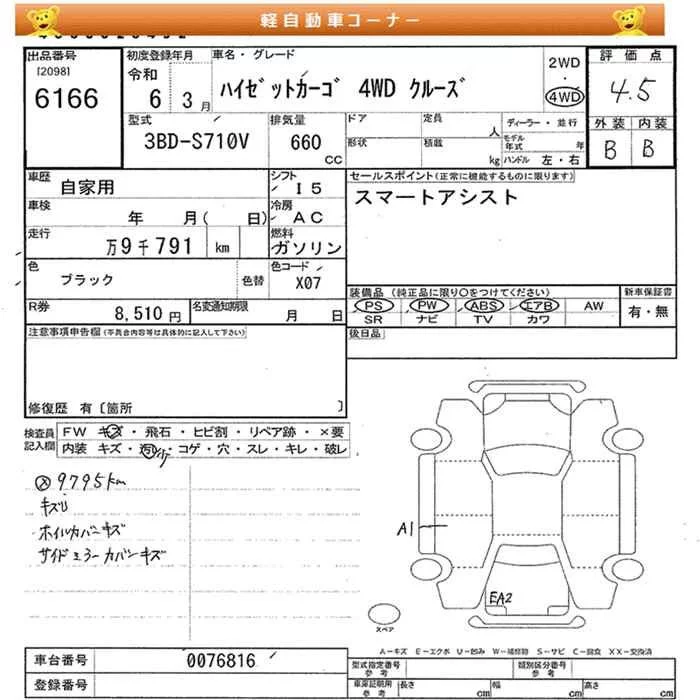 軽自動車コーナー
出品番号
[2098]
6166
初度登録年月
令和
6 3月
車名・グレード
ハイゼットカーゴ 4WD クルーズ
2WD
・
4WD
評価点
4.5
外装 内装
B B
型式
3BD-S710V
排気量
660
CC
ドア
定員
人
形状
積載
kg
ディーラー・並行
モデル年式
年
ハンドル 左・右
車歴
自家用
シフト
I5
車検
年 月( 日)
冷房
AC
走行
万9千791 km
燃料
ガソリン
色
ブラック
色替
色コード
X07
R券
8,510円
名変通知期限
月 日
セールスポイント(正常に機能するものに限ります)
スマートアシスト
装備品(純正品に限り○をつけてください)
PS PW ABS エアB AW
SR ナビ TV カワ
新車保証書
有・無
後日品
注意事項申告欄(不具合内容等は具体的に記入して下さい)
修復歴 有〔箇所 〕
検査員
記入欄
FW キズ・飛石・ヒビ割・リペア跡・×要
内装 キズ・汚レ・コゲ・穴・スレ・キレ・破レ
9795km
キズU
ホイルカバーキズ
サイドミラーカバーキズ
A1
EA2
スペア
A－キズ E－エクボ U－凹み W－補修跡 S－サビ C－腐食 XX－交換済
車台番号
0076816
登録番号
型式指定番号
参考
類別区分番号
参考
車庫証明用
参考
長さ cm 幅 cm 高さ cm